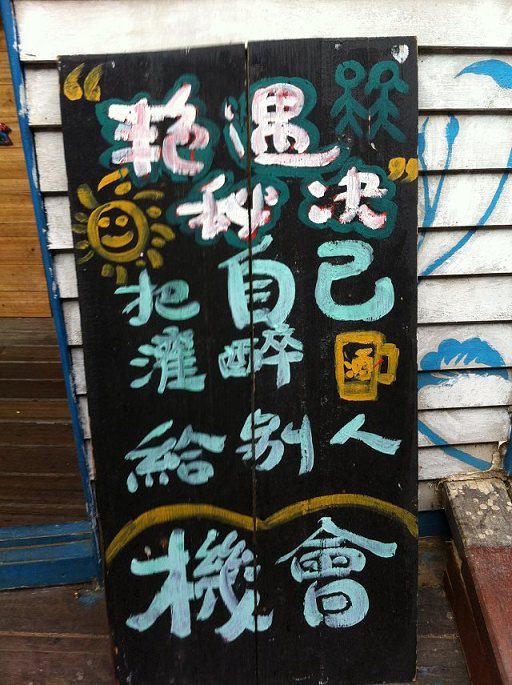 “艳遇
秘决”
把自己
灌醉 酒
給别人
機會